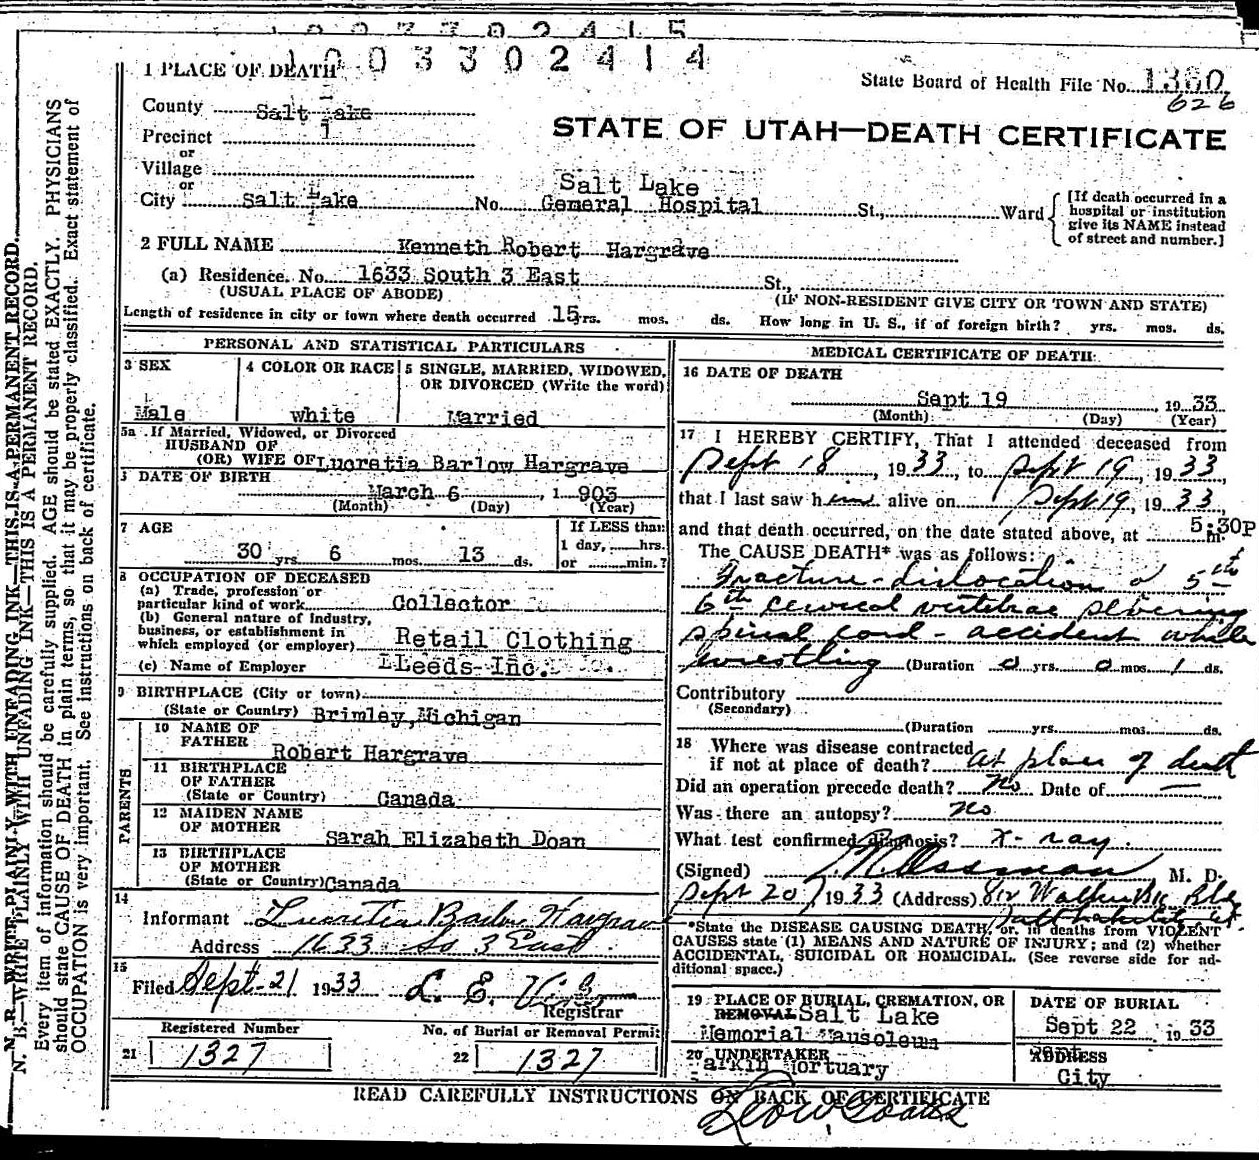 1003302415
1003302414
State Board of Health File No. 1360
626
STATE OF UTAH—DEATH CERTIFICATE
1 PLACE OF DEATH
County Salt Lake
Precinct 1
or
Village
or
City Salt Lake No. Salt Lake General Hospital St., Ward
[If death occurred in a
hospital or institution
give its NAME instead
of street and number.]
2 FULL NAME Kenneth Robert Hargrave
(a) Residence. No. 1633 South 3 East St.,
(USUAL PLACE OF ABODE) (IF NON-RESIDENT GIVE CITY OR TOWN AND STATE)
Length of residence in city or town where death occurred 15 yrs. mos. ds. How long in U. S., if of foreign birth? yrs. mos. ds.
PERSONAL AND STATISTICAL PARTICULARS
3 SEX
Male
4 COLOR OR RACE
white
5 SINGLE, MARRIED, WIDOWED,
OR DIVORCED (Write the word)
Married
5a If Married, Widowed, or Divorced
HUSBAND OF
(OR) WIFE OF Lucretia Barlow Hargrave
DATE OF BIRTH
March 6, 1 903
(Month) (Day) (Year)
7 AGE
30 yrs. 6 mos. 13 ds.
If LESS than
1 day, hrs.
or min.?
8 OCCUPATION OF DECEASED
(a) Trade, profession or
particular kind of work Collector
(b) General nature of industry,
business, or establishment in
which employed (or employer) Retail Clothing
(c) Name of Employer Leeds-Inc.
9 BIRTHPLACE (City or town)
(State or Country) Brimley, Michigan
PARENTS
10 NAME OF
FATHER Robert Hargrave
11 BIRTHPLACE
OF FATHER
(State or Country) Canada
12 MAIDEN NAME
OF MOTHER Sarah Elizabeth Doan
13 BIRTHPLACE
OF MOTHER
(State or Country) Canada
14
Informant Lucretia Barlow Hargrave
Address 1633 So 3 East
15
Filed Sept 21 1933 L. E.
Registrar
Registered Number
21 1327
No. of Burial or Removal Permit
22 1327
MEDICAL CERTIFICATE OF DEATH
16 DATE OF DEATH
Sept 19 1933
(Month) (Day) (Year)
17 I HEREBY CERTIFY, That I attended deceased from
Sept 18, 1933, to Sept 19, 1933,
that I last saw him alive on Sept 19, 1933,
and that death occurred, on the date stated above, at 5:30P m.
The CAUSE DEATH* was as follows:
Fracture-dislocation of 5th
6th cervical vertebrae severing
spinal cord - accident while
wrestling (Duration 0 yrs. 0 mos. 1 ds.
Contributory
(Secondary)
(Duration yrs. mos. ds.
18 Where was disease contracted
if not at place of death? at place of death
Did an operation precede death? No Date of —
Was there an autopsy? No.
What test confirmed Diagnosis? X-ray.
(Signed) M. D.
Sept 20, 1933 (Address)
*State the DISEASE CAUSING DEATH, or, in deaths from VIOLENT
CAUSES state (1) MEANS AND NATURE OF INJURY; and (2) whether
ACCIDENTAL, SUICIDAL OR HOMICIDAL. (See reverse side for ad-
ditional space.)
19 PLACE OF BURIAL, CREMATION, OR
REMOVAL Salt Lake
Memorial Mausoleum
DATE OF BURIAL
Sept 22 1933
20 UNDERTAKER
Mortuary
ADDRESS
City
READ CAREFULLY INSTRUCTIONS ON BACK OF CERTIFICATE
N. B.—WRITE PLAINLY WITH UNFADING INK—THIS IS A PERMANENT RECORD.
Every item of information should be carefully supplied. AGE should be stated EXACTLY. PHYSICIANS
should state CAUSE OF DEATH in plain terms, so that it may be properly classified. Exact statement of
OCCUPATION is very important. See instructions on back of certificate.